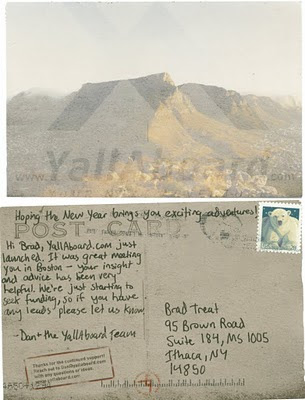 www.YallAboard.com
Hoping the New Year brings you exciting adventures!
POST CARD
Hi Brad, YallAboard.com just
launched. It was great meeting
you in Boston - your insight
and advice has been very
helpful. We're just starting to
seek funding, so if you have
any leads please let us know
-Dan + the YallAboard Team
Thanks for the continued support!
Reach out to Dan@yallaboard.com
with any questions or ideas.
www.yallaboard.com
Brad Treat
95 Brown Road
Suite 184, MS 1005
Ithaca, NY
14850